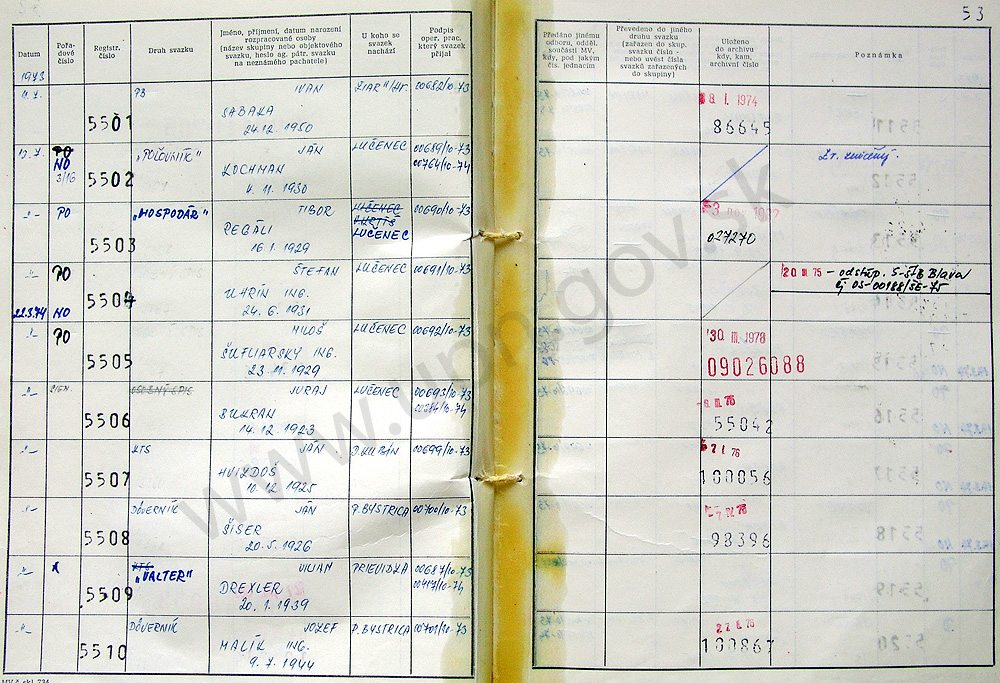 53
Datum
Pořa-
dové
číslo
Registr.
číslo
Druh svazku
Jméno, příjmení, datum narození
rozpracované osoby
(název skupiny nebo objektového
svazku, heslo ag. pátr. svazku
na neznámého pachatele)
U koho se
svazek
nachází
Podpis
oper. prac.
který svazek
přijal
Předáno jinému
odboru, odděl.
součásti MV,
kdy, pod jakým
čís. jednacím
Převedeno do jiného
druhu svazku
(zařazen do skup.
svazku číslo -
nebo uvést čísla
svazků zařazených
do skupiny)
Uloženo
do archivu
kdy, kam,
archivní číslo
Poznámka
1973
5501
IVAN
SABAKA
24.12. 1950
00682/10-73
8. I. 1974
86645
PO
NO
3/16
5502
JÁN
KOCHMAN
4. 11. 1930
LUČENEC
00689/10-73
00764/10-74
Zv. zničený.
PO
5503
„HOSPODÁR"
TIBOR
16. 1. 1929
LUČENEC
LUČENEC
00690/10-73
027270
PO
22.3.74
NO
5504
ŠTEFAN
UHRÍN ING.
24. 6. 1931
LUČENEC
00691/10-73
20 III 75 - odstúp. S-ŠtB Blava
čj OS-00188/SE-75
PO
5505
MILOŠ
ŠUFLIARSKY ING.
23. 11. 1929
LUČENEC
00692/10-73
30. III. 1978
09026088
5506
JURAJ
BUKRAN
14. 12. 1923
LUČENEC
00693/10-73
55042
5507
KTS
JÁN
HVIZDOŠ
10. 12. 1925
D. KUBÍN
00699/10-73
100056
5508
DÔVERNÍK
JÁN
ŠISER
20. 5. 1926
P. BYSTRICA
00700/10-73
98396
5509
KTS
„VALTER"
VILIAM
DREXLER
20. 1. 1939
PRIEVIDZA
00687/10-73
00417/10-74
5510
DÔVERNÍK
JOZEF
MALÍK ING.
9. 7. 1944
P. BYSTRICA
00701/10-73
100867
www.upn.gov.sk